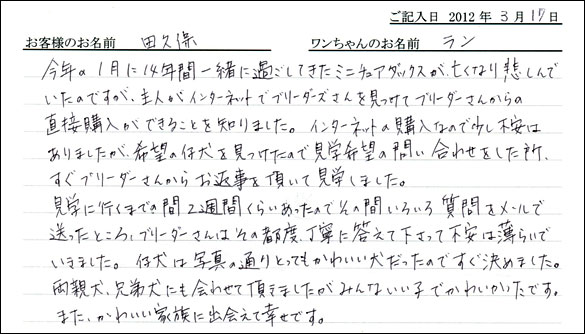 ご記入日 2012 年 3 月 17 日
お客様のお名前 田久保 ワンちゃんのお名前 ラン
今年の1月に14年間一緒に過ごしてきたミニチュアダックスが、亡くなり悲しんで
いたのですが、主人がインターネットでブリーダーズさんを見つけてブリーダーさんからの
直接購入ができることを知りました。インターネットの購入なので少し不安は
ありましたが、希望の仔犬を見つけたので見学希望の問い合わせをした所、
すぐブリーダーさんからお返事を頂いて見学しました。
見学に行くまでの間2週間くらいあったのでその間いろいろ質問をメールで
送ったところ、ブリーダーさんはその都度、丁寧に答えて下さって不安は薄らいで
いきました。仔犬は写真の通りとってもかわいい犬だったのですぐ決めました。
両親犬、兄弟犬にも会わせて頂きましたがみんないい子でかわいかったです。
また、かわいい家族に出会えて幸せです。